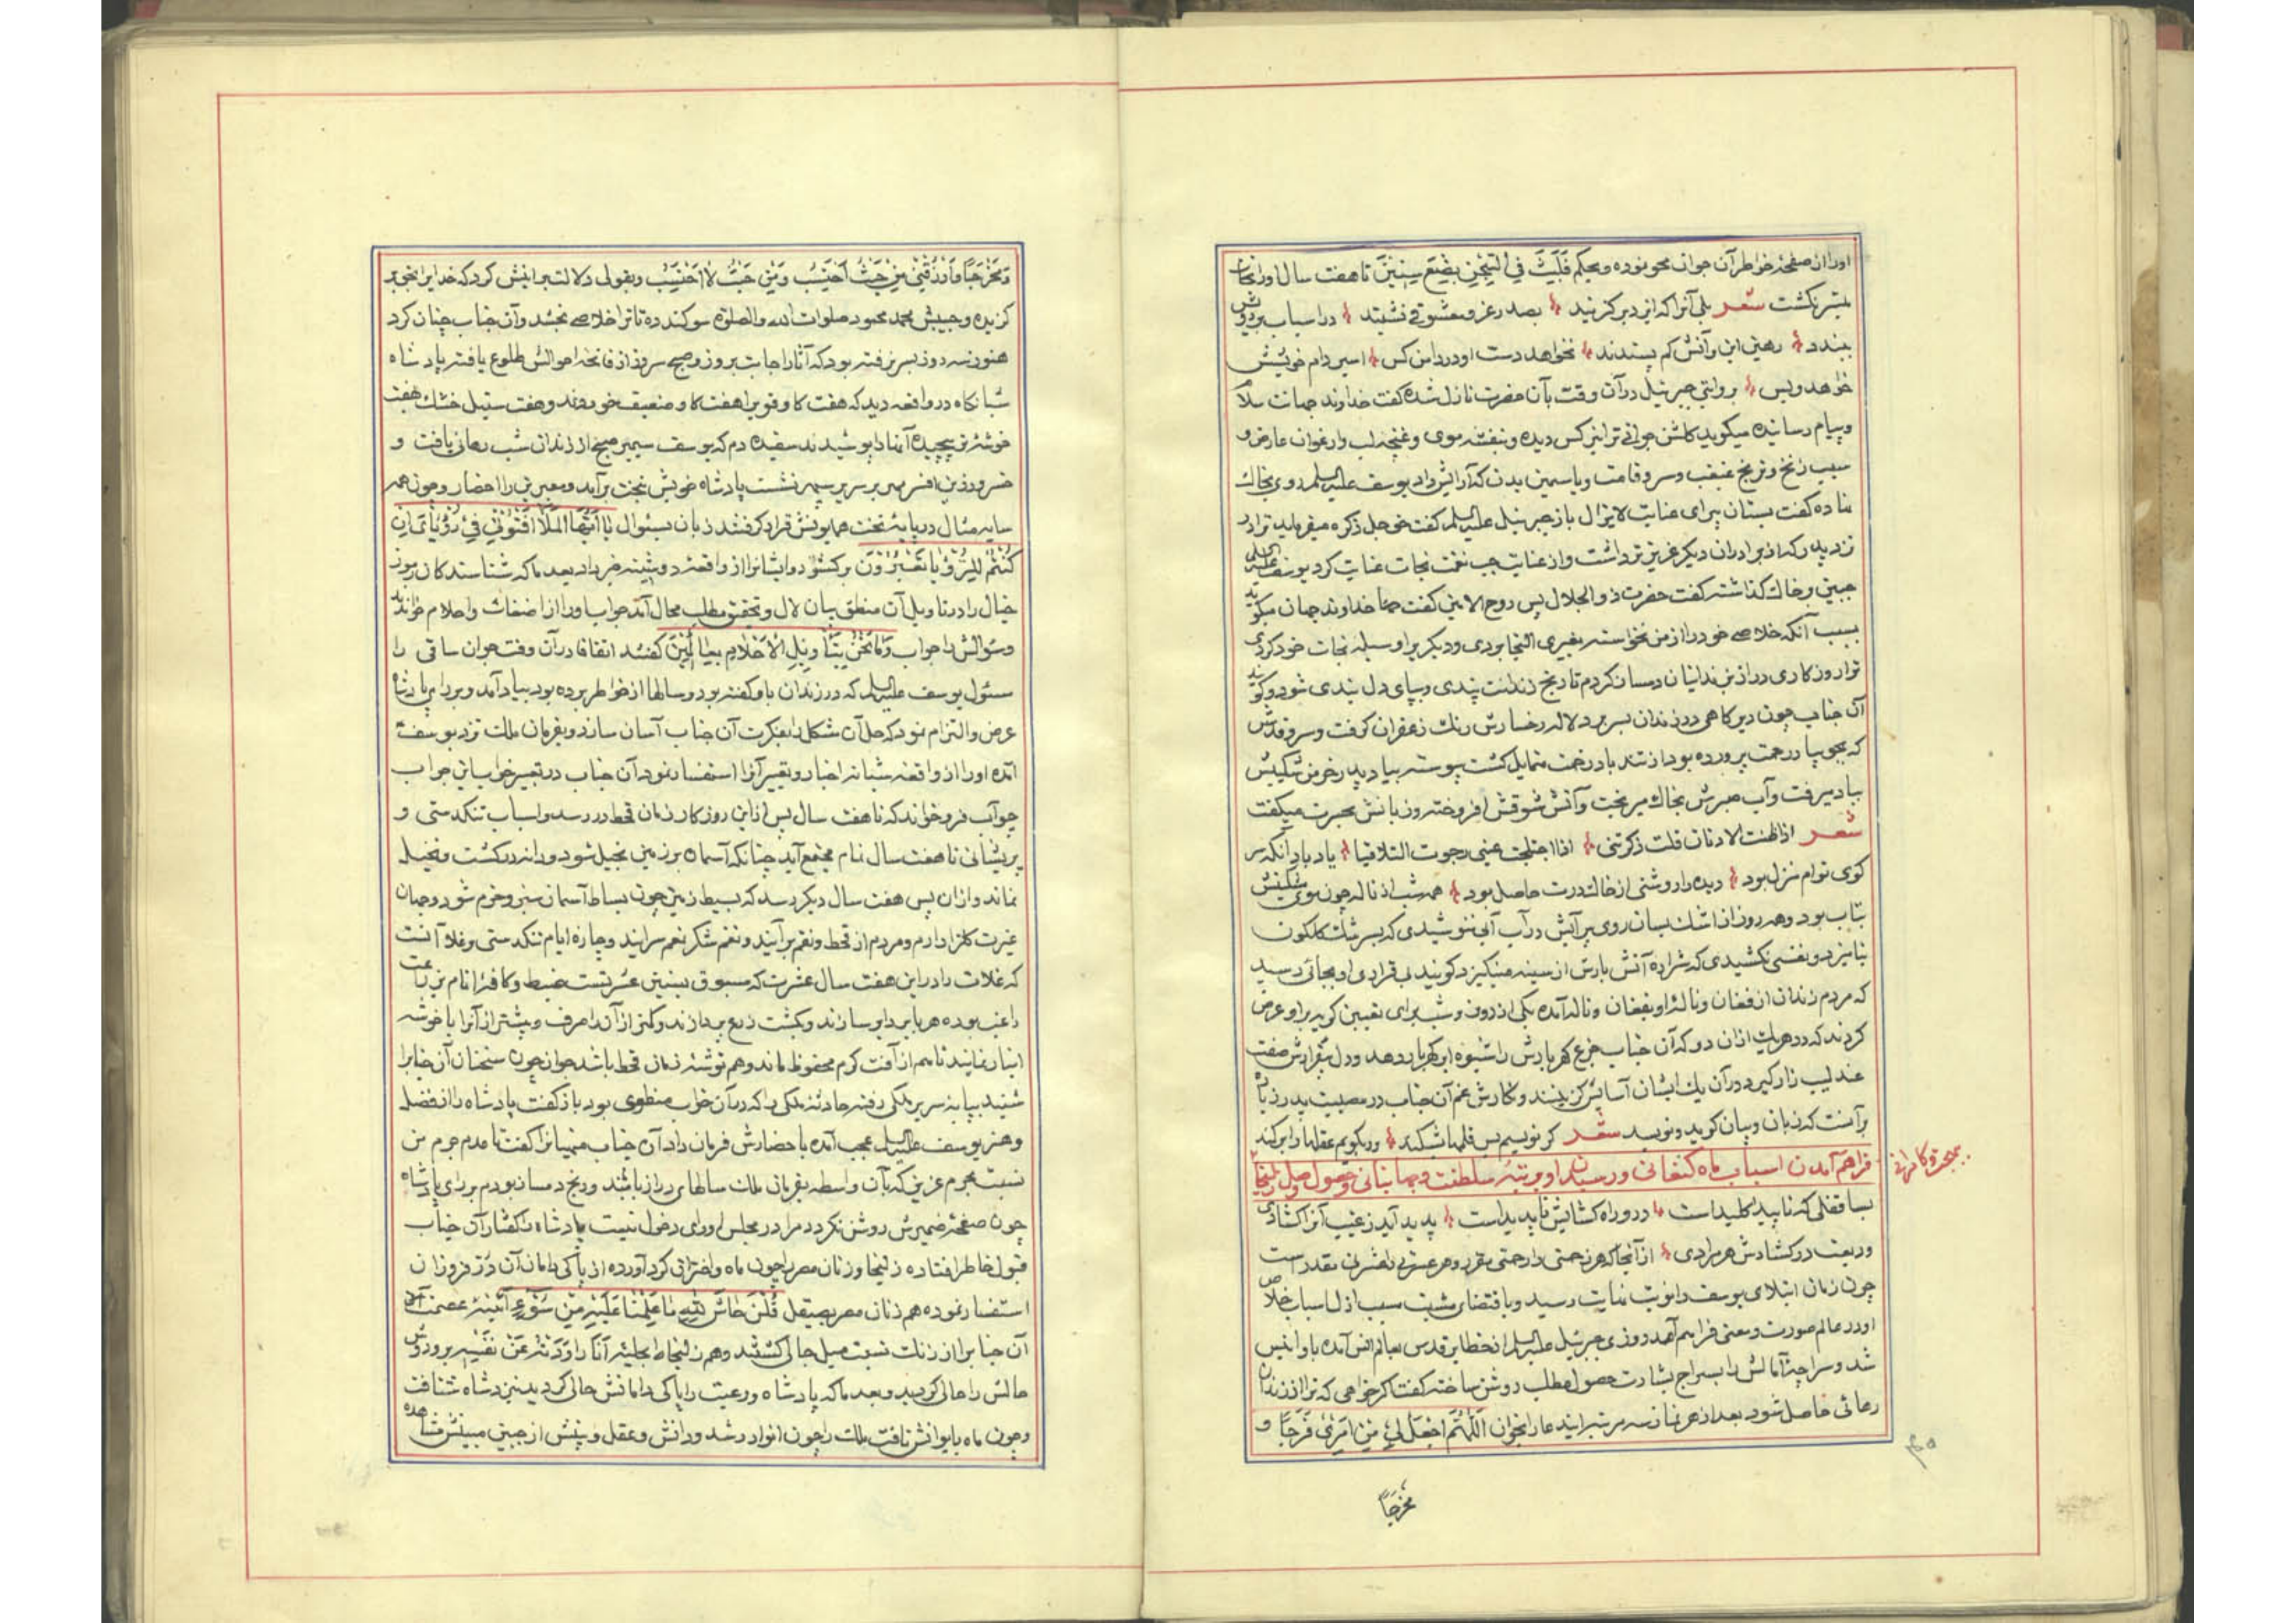 او را از صفحهٔ خواطر آن جوان محو نموده و بحکم فَلَبِثَ فِی السِّجْنِ بِضْعَ سِنِینَ تا هفت سال او را نجات
میسر نکشت شعر بلی آنرا که ایزد بر کزیند بصدر عز و معشوقی نشیند در اسباب بر رویش
ببندد رهین این و آنش کم پسندد نخواهد دست او در دامن کس اسیر دام خویشش
خواهد و بس بروایتی جبرئیل در آن وقت بآن حضرت نازل شده کفت خداوند جهانت سلام
و پیام رسانیده میکوید کلشن جوانی ترا نرکس دیده و بنفشه موی و غنچه لب و ارغوان عارض و
سیب زنخ و ترنج غبغب و سرو قامت و یاسمین بدن که آرایش داد یوسف علیه السلم روی بخاک
نهاده کفت بستان پیرای عنایت لایزال باز جبرئیل علیه السلم کفت حق جل ذکره میفرماید ترا در
نزد پدر که از برادران دیکر عزیزتر داشت و از غیابت جب نعمت نجات عنایت کرد یوسف علیه السلم
جبین بر خاک کذاشته کفت حضرت ذو الجلال پس روح الامین کفت حقا خداوند جهان میکوید
بسبب آنکه خلاصی خود را از من نخواسته بغیری التجا بودی و دیکریرا وسیلهٔ نجات خود کردی
ترا روزکاری دراز بزندانیان دمساز کردم تا رنج زندانت پندی و بپای دل بندی شود و کویند
آن جناب چون دیر کاهی در زندان بسر برد لاله رخسارش رنک زعفران کرفت و سرو قدش
که بجوی با رحمت پرورده بود از تند باد زحمت متمایل کشت پیوسته بیاد پدر خرمن شکیبش
بباد میرفت و آب صبرش بخاک میریخت و آتش شوقش افروخته و زبانش بحسرت میکفت
شعر اذا طنت الاذنان قلت ذکرتنی اذا اختلجت عینی رجوت التلاقیا یاد باد آنکه سر
کوی توام منزل بود دیده را روشنی از خاک درت حاصل بود همه شب از ناله چون موی
بیتاب بود و هر روز از اشک بسان روی پر آبش در آب آبی ننوشیدی که بسرشک کلکون
نیامیزد و نفسی نکشیدی که شراره آتش بارش از سینه نینکیزد کویند بیقراری او بجائی رسید
که مردم زندان از فغان و نالهٔ او بفغان و ناله آمده یکی از روز و شب برای تعیین کریه بر او عرض
کردند که در هر یک از آن دو که آن جناب جزع کهر بارش را شیوه ابر کهربار دهد و دل بیقرارش صفت
عندلیب زار کیرد در آن یک ایشان آسایش کزینند و نکارش غم آن جناب در مصیبت پدر زیاده
بر آنست که زبان و بیان کوید و نویسد شعر کر نویسم بس قلمها بشکند ور بکویم عقلها را بر کند
فراهم آمدن اسباب ماه کنعانی و رسیدن او برتبهٔ سلطنت و جهانبانی و حصول وصل زلیخا
بسا قفلی که ناپیدا کلید است درو راه کشایش ناپدید است پدید آید ز غیب آنرا کشادی
ودیعت در کشادش هر مرادی از آنجا که هر زحمتی را رحمتی مقرر و هر عسرتی را عشرتی مقدر است
چون زمان ابتلای یوسف را نوبت بنهایت رسید و باقتضای مشیت مسبب ازل اسباب خلاص
او در عالم صورت و معنی فراهم آمد روزی جبرئیل علیه السلم از خطایر قدس بعالم انس آمده با او انیس
شد و سراچهٔ آمالش را بسراج بشارت حصول مطلب روشن ساخته کفت اکر خواهی که ترا از زندان
رهائی حاصل شود بعد از هر نماز سه مرتبه این دعا را بخوان اَللّٰهُمَّ اجْعَلْ لِی مِنْ اَمْرِی فَرَجًا وَ
مَخْرَجًا
وَ مَخْرَجًا وَ ارْزُقْنِی مِنْ حَیْثُ اَحْتَسِبُ وَ مِنْ حَیْثُ لَا اَحْتَسِبُ و بقولی دلالت بر اینش کرد که خدایرا بحق بر
کزیده و حبیبش محمد محمود صلوات الله و الصلوة سوکند ده تا ترا خلاصی بخشد و آن جناب چنان کرد
هنوز سه روز بسر نرفته بود که آثار اجابت بروز و صبح سروز از فاتحهٔ احوالش طلوع یافته پادشاه
شبانکاه در واقعه دید که هفت کاو قویرا هفت کاو ضعیف خوردند و هفت سنبل خشک بهفت
خوشه تر پیچیده آنها را پوشیدند سفیده دم که یوسف سیمبر صبح از زندان شب رهائی یافت و
خسرو زرین افسر مهر بر سریر سپهر نشست پادشاه خویش بتخت برآمد و معبرین را احضار و چون همه
سایه مثال در پایهٔ تخت همایونش قرار کرفتند زبان بسئوال یَا اَیُّهَا الْمَلَأُ اَفْتُونِی فِی رُؤْیَایَ اِن
کُنْتُمْ لِلرُّؤْیَا تَعْبُرُونَ برکشود و ایشانرا از واقعهٔ دوشینه خبر داد بعد ما که شناسندکان رموز
خیال را در تاویل آن منطق بیان لال و تحقیق مطلب محال آمد جواب او را از اضغاث و احلام خواندند
و سئوالش را جواب وَ مَا نَحْنُ بِتَأْوِیلِ الْاَحْلَامِ بِعَالِمِینَ کفتند اتفاقا در آن وقت جوان ساقی را
مسئول یوسف علیه السلم که در زندان باو کفته بود و سالها از خواطر برده بود بیاد آمد و بر رای پادشاه
عرض و التزام نمود که حل آن مشکل را بفکرت آن جناب آسان سازد و بفرمان ملک نزد یوسف
آمده او را از واقعهٔ شبانه اخبار و تعبیر آنرا استفسار نمود آن جناب در تعبیر خواب این جواب
چو آب فرو خواند که تا هفت سال پس از این روزکار زمان قحط در رسد و اسباب تنکدستی و
پریشانی تا هفت سال تمام مجتمع آید چنانکه آسمان بر زمین بخیل شود و دانه در کشت و نخیل
نماند و از آن پس هفت سال دیکر رسد که بسیط زمین چون بساط آسمان سبز و خرم شود و جهان
غیرت کلزار ارم و مردم از قحط و نقم بر آیند و نغم شکر نعم سرایند و چاره ایام تنکدستی و غلا آنست
که غلات را در این هفت سال عشرت که مسبوق بسنین عسرتست ضبط و کافهٔ انام بزراعت
راغب بوده هر بایر دایر سازند و بکشت زرع پردازند و کمتر از آن را صرف و بیشتر از آنرا با خوشه
انبار نمایند تا هم از آفت کرم محفوظ ماند و هم توشهٔ زمان قحط باشد جوان چون سخنان آن جنابرا
شنید بپایه سریر ملکی رفته حادثهٔ ملکی را که در آن خواب منطوی بود باز کفت پادشاه را از فضل
و هنر یوسف علیه السلم عجب آمده باحضارش فرمان داد آن جناب منهیانرا کفت تا عدم جرم من
نسبت بحرم عزیز که بآن واسطه بفرمان ملک سالهای دراز بابند و رنج دمساز بودم بر رای پادشاه
چون صفحهٔ ضمیرش روشن نکردد مرا در مجلس او رای دخول نیست پادشاه را کفتار آن جناب
قبول خاطر افتاده زلیخا و زنان مصر را چون ماه و اختران کرد آورده از پاکی دامان آن دُرّ فروزان
استفسار نموده هم زنان مصر بصیقل قُلْنَ حَاشَ لِلّٰهِ مَا عَلِمْنَا عَلَیْهِ مِنْ سُوءٍ آئینهٔ عصمت
آن جنابرا از زنک نسبت میل جالی کشتند و هم زلیخا ط ابجلیهٔ اَنَا رَاوَدْتُهُ عَنْ نَفْسِهِ بر و دوش
حالش را حالی کردید و بعد ما که پادشاه و رعیت را پاکی دامانش حالی کردید بنزد شاه شتافت
و چون ماه بایوانش تافت ملک را چون انوار رشد و دانش و عقل و بینش از جبین مبینش مشاهده